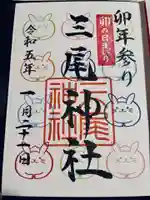 卯年参り
卯の日まいり
三尾神社
令和五年
一月二十一日